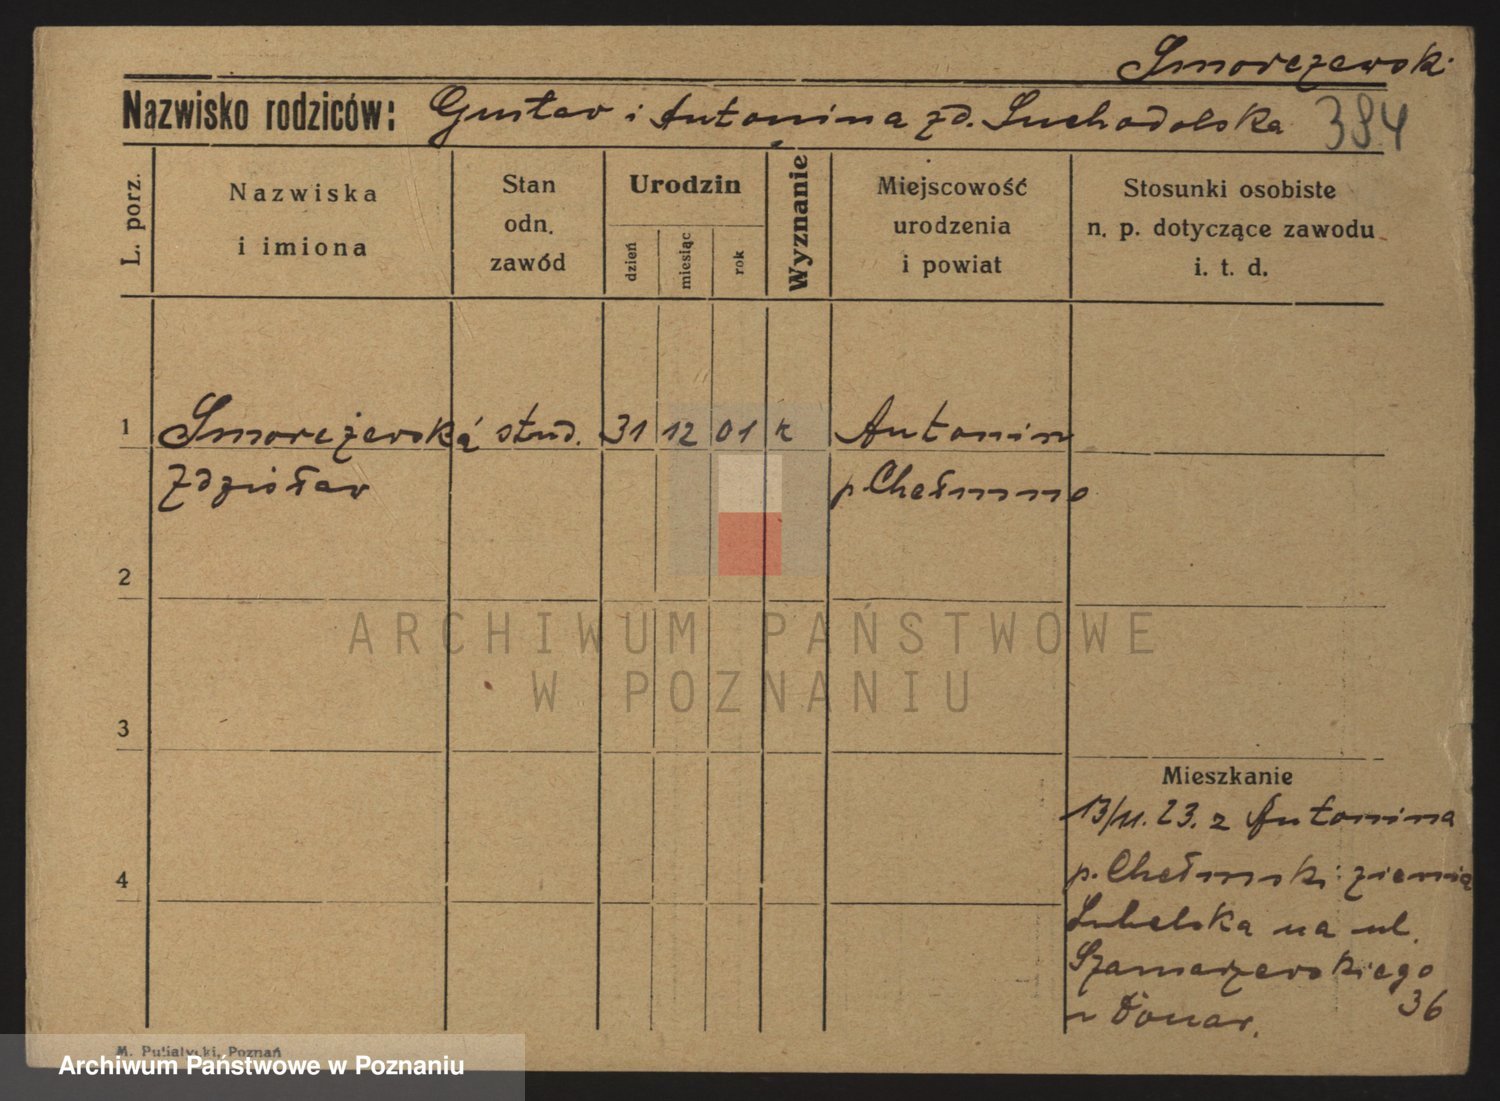 Smorczewski
Nazwisko rodziców: Gustaw i Antonina zd. Suchodolska 384
L. porz.
Nazwiska
i imiona
Stan
odn.
zawód
Urodzin
dzień
miesiąc
rok
Wyznanie
Miejscowość
urodzenia
i powiat
Stosunki osobiste
n. p. dotyczące zawodu
i. t. d.
1 stud. 31 12 01 k Antonin
Zdzisław p. Chełmno
2
3
Mieszkanie
13/11. 23. z Antonina
4 p. Chełmski ziemia
Lubelska na ul.
Szamarzewskiego
36
M. Putiatycki, Poznań
ARCHIWUM PAŃSTWOWE
W POZNANIU
Archiwum Państwowe w Poznaniu